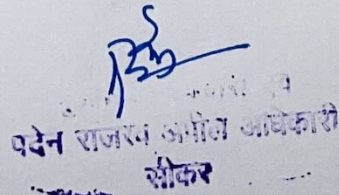 पदेन राजस्व अपील अधिकारी
सीकर